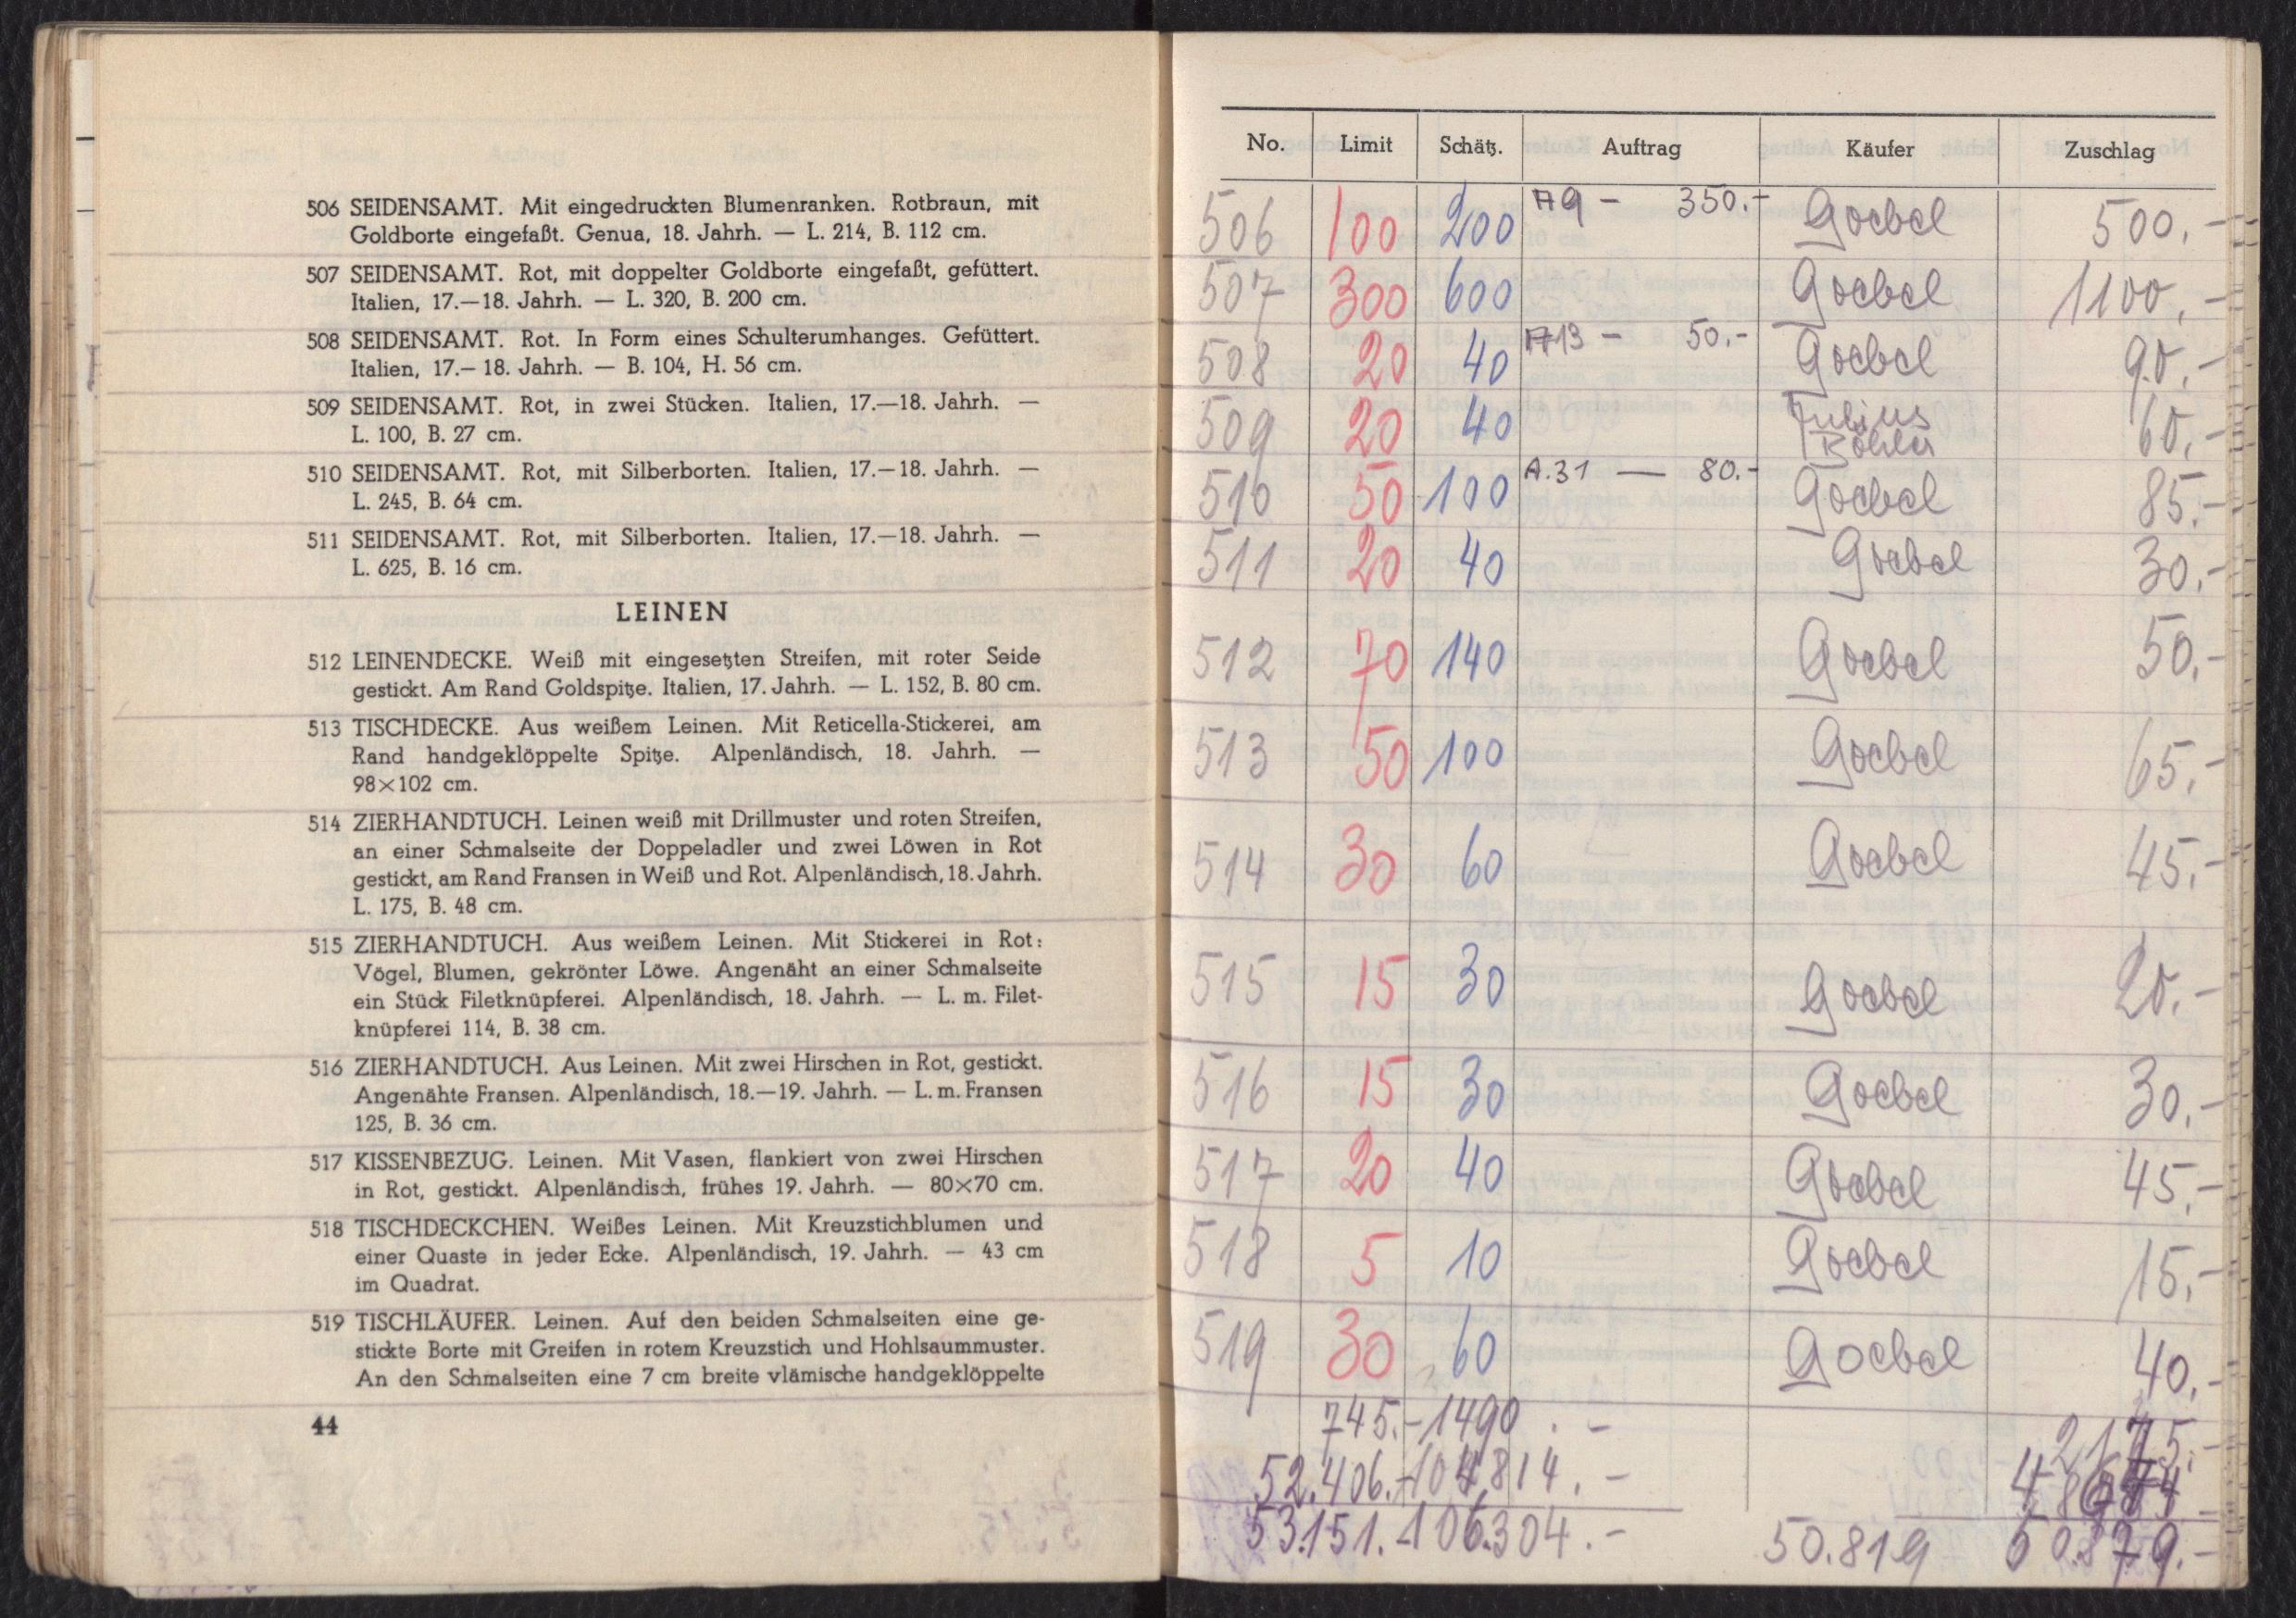 506 SEIDENSAMT. Mit eingedruckten Blumenranken. Rotbraun, mit
Goldborte eingefaßt. Genua, 18. Jahrh. — L. 214, B. 112 cm.
507 SEIDENSAMT. Rot, mit doppelter Goldborte eingefaßt, gefüttert.
Italien, 17.—18. Jahrh. — L. 320, B. 200 cm.
508 SEIDENSAMT. Rot. In Form eines Schulterumhanges. Gefüttert.
Italien, 17.—18. Jahrh. — B. 104, H. 56 cm.
509 SEIDENSAMT. Rot, in zwei Stücken. Italien, 17.—18. Jahrh. —
L. 100, B. 27 cm.
510 SEIDENSAMT. Rot, mit Silberborten. Italien, 17.—18. Jahrh. —
L. 245, B. 64 cm.
511 SEIDENSAMT. Rot, mit Silberborten. Italien, 17.—18. Jahrh. —
L. 625, B. 16 cm.
LEINEN
512 LEINENDECKE. Weiß mit eingesetzten Streifen, mit roter Seide
gestickt. Am Rand Goldspitze. Italien, 17. Jahrh. — L. 152, B. 80 cm.
513 TISCHDECKE. Aus weißem Leinen. Mit Reticella-Stickerei, am
Rand handgeklöppelte Spitze. Alpenländisch, 18. Jahrh. —
98×102 cm.
514 ZIERHANDTUCH. Leinen weiß mit Drillmuster und roten Streifen,
an einer Schmalseite der Doppeladler und zwei Löwen in Rot
gestickt, am Rand Fransen in Weiß und Rot. Alpenländisch, 18. Jahrh.
L. 175, B. 48 cm.
515 ZIERHANDTUCH. Aus weißem Leinen. Mit Stickerei in Rot:
Vögel, Blumen, gekrönter Löwe. Angenäht an einer Schmalseite
ein Stück Filetknüpferei. Alpenländisch, 18. Jahrh. — L. m. Filet-
knüpferei 114, B. 38 cm.
516 ZIERHANDTUCH. Aus Leinen. Mit zwei Hirschen in Rot, gestickt.
Angenähte Fransen. Alpenländisch, 18.—19. Jahrh. — L. m. Fransen
125, B. 36 cm.
517 KISSENBEZUG. Leinen. Mit Vasen, flankiert von zwei Hirschen
in Rot, gestickt. Alpenländisch, frühes 19. Jahrh. — 80×70 cm.
518 TISCHDECKCHEN. Weißes Leinen. Mit Kreuzstichblumen und
einer Quaste in jeder Ecke. Alpenländisch, 19. Jahrh. — 43 cm
im Quadrat.
519 TISCHLÄUFER. Leinen. Auf den beiden Schmalseiten eine ge-
stickte Borte mit Greifen in rotem Kreuzstich und Hohlsaummuster.
An den Schmalseiten eine 7 cm breite vlämische handgeklöppelte
44
No. Limit Schätz. Auftrag Käufer Zuschlag
506 100 200 A9 — 350.- Goebel 500.-
507 300 600 Goebel 1100.-
508 20 40 A13 — 50.- Goebel 90.-
509 20 40 Julius Böhler 60.-
510 50 100 A.31 — 80.- Goebel 85.-
511 20 40 Goebel 30.-
512 70 140 Goebel 50.-
513 50 100 Goebel 65.-
514 30 60 Goebel 45.-
515 15 30 Goebel 20.-
516 15 30 Goebel 30.-
517 20 40 Goebel 45.-
518 5 10 Goebel 15.-
519 30 60 Goebel 40.-
745.- 1490.-
2175.-
52.406.- 104.814.-
53.151.- 106.304.-
50.819